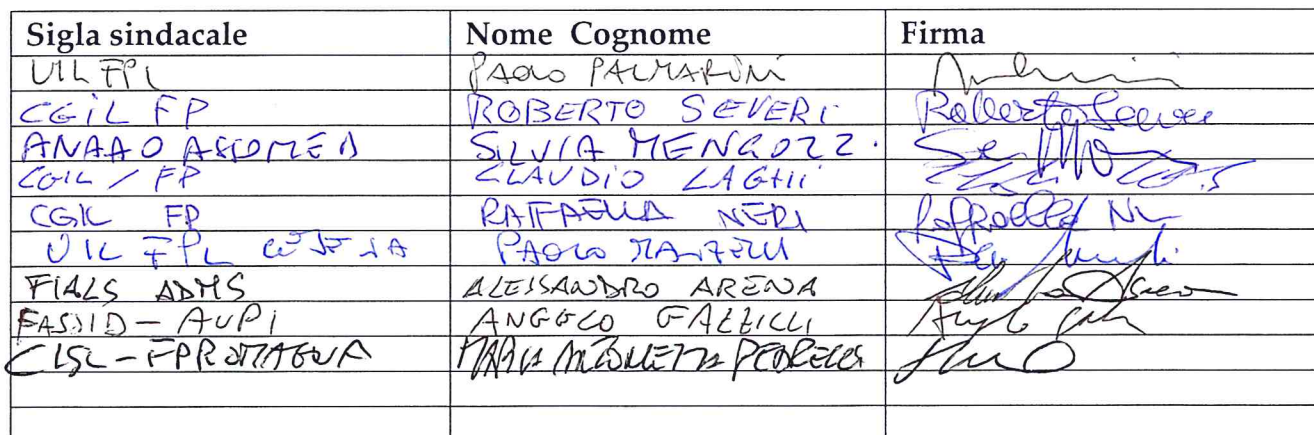 Sigla sindacale Nome Cognome Firma
UIL FPL PAOLO PALMARINI
CGIL FP ROBERTO SEVERI Roberto Severi
ANAAO ASSOMED SILVIA MENGOZZI
CGIL / FP CLAUDIO LAGHI
CGIL FP RAFFAELLA NERI Raffaella
UIL FPL CESENA PAOLO MANZELLI
FIALS ADMS ALESSANDRO ARENA
FASSID - AUPI ANGELO GALLILLI
CISL - FP ROMAGNA MARIA ANTONIETTA PEDRELLI